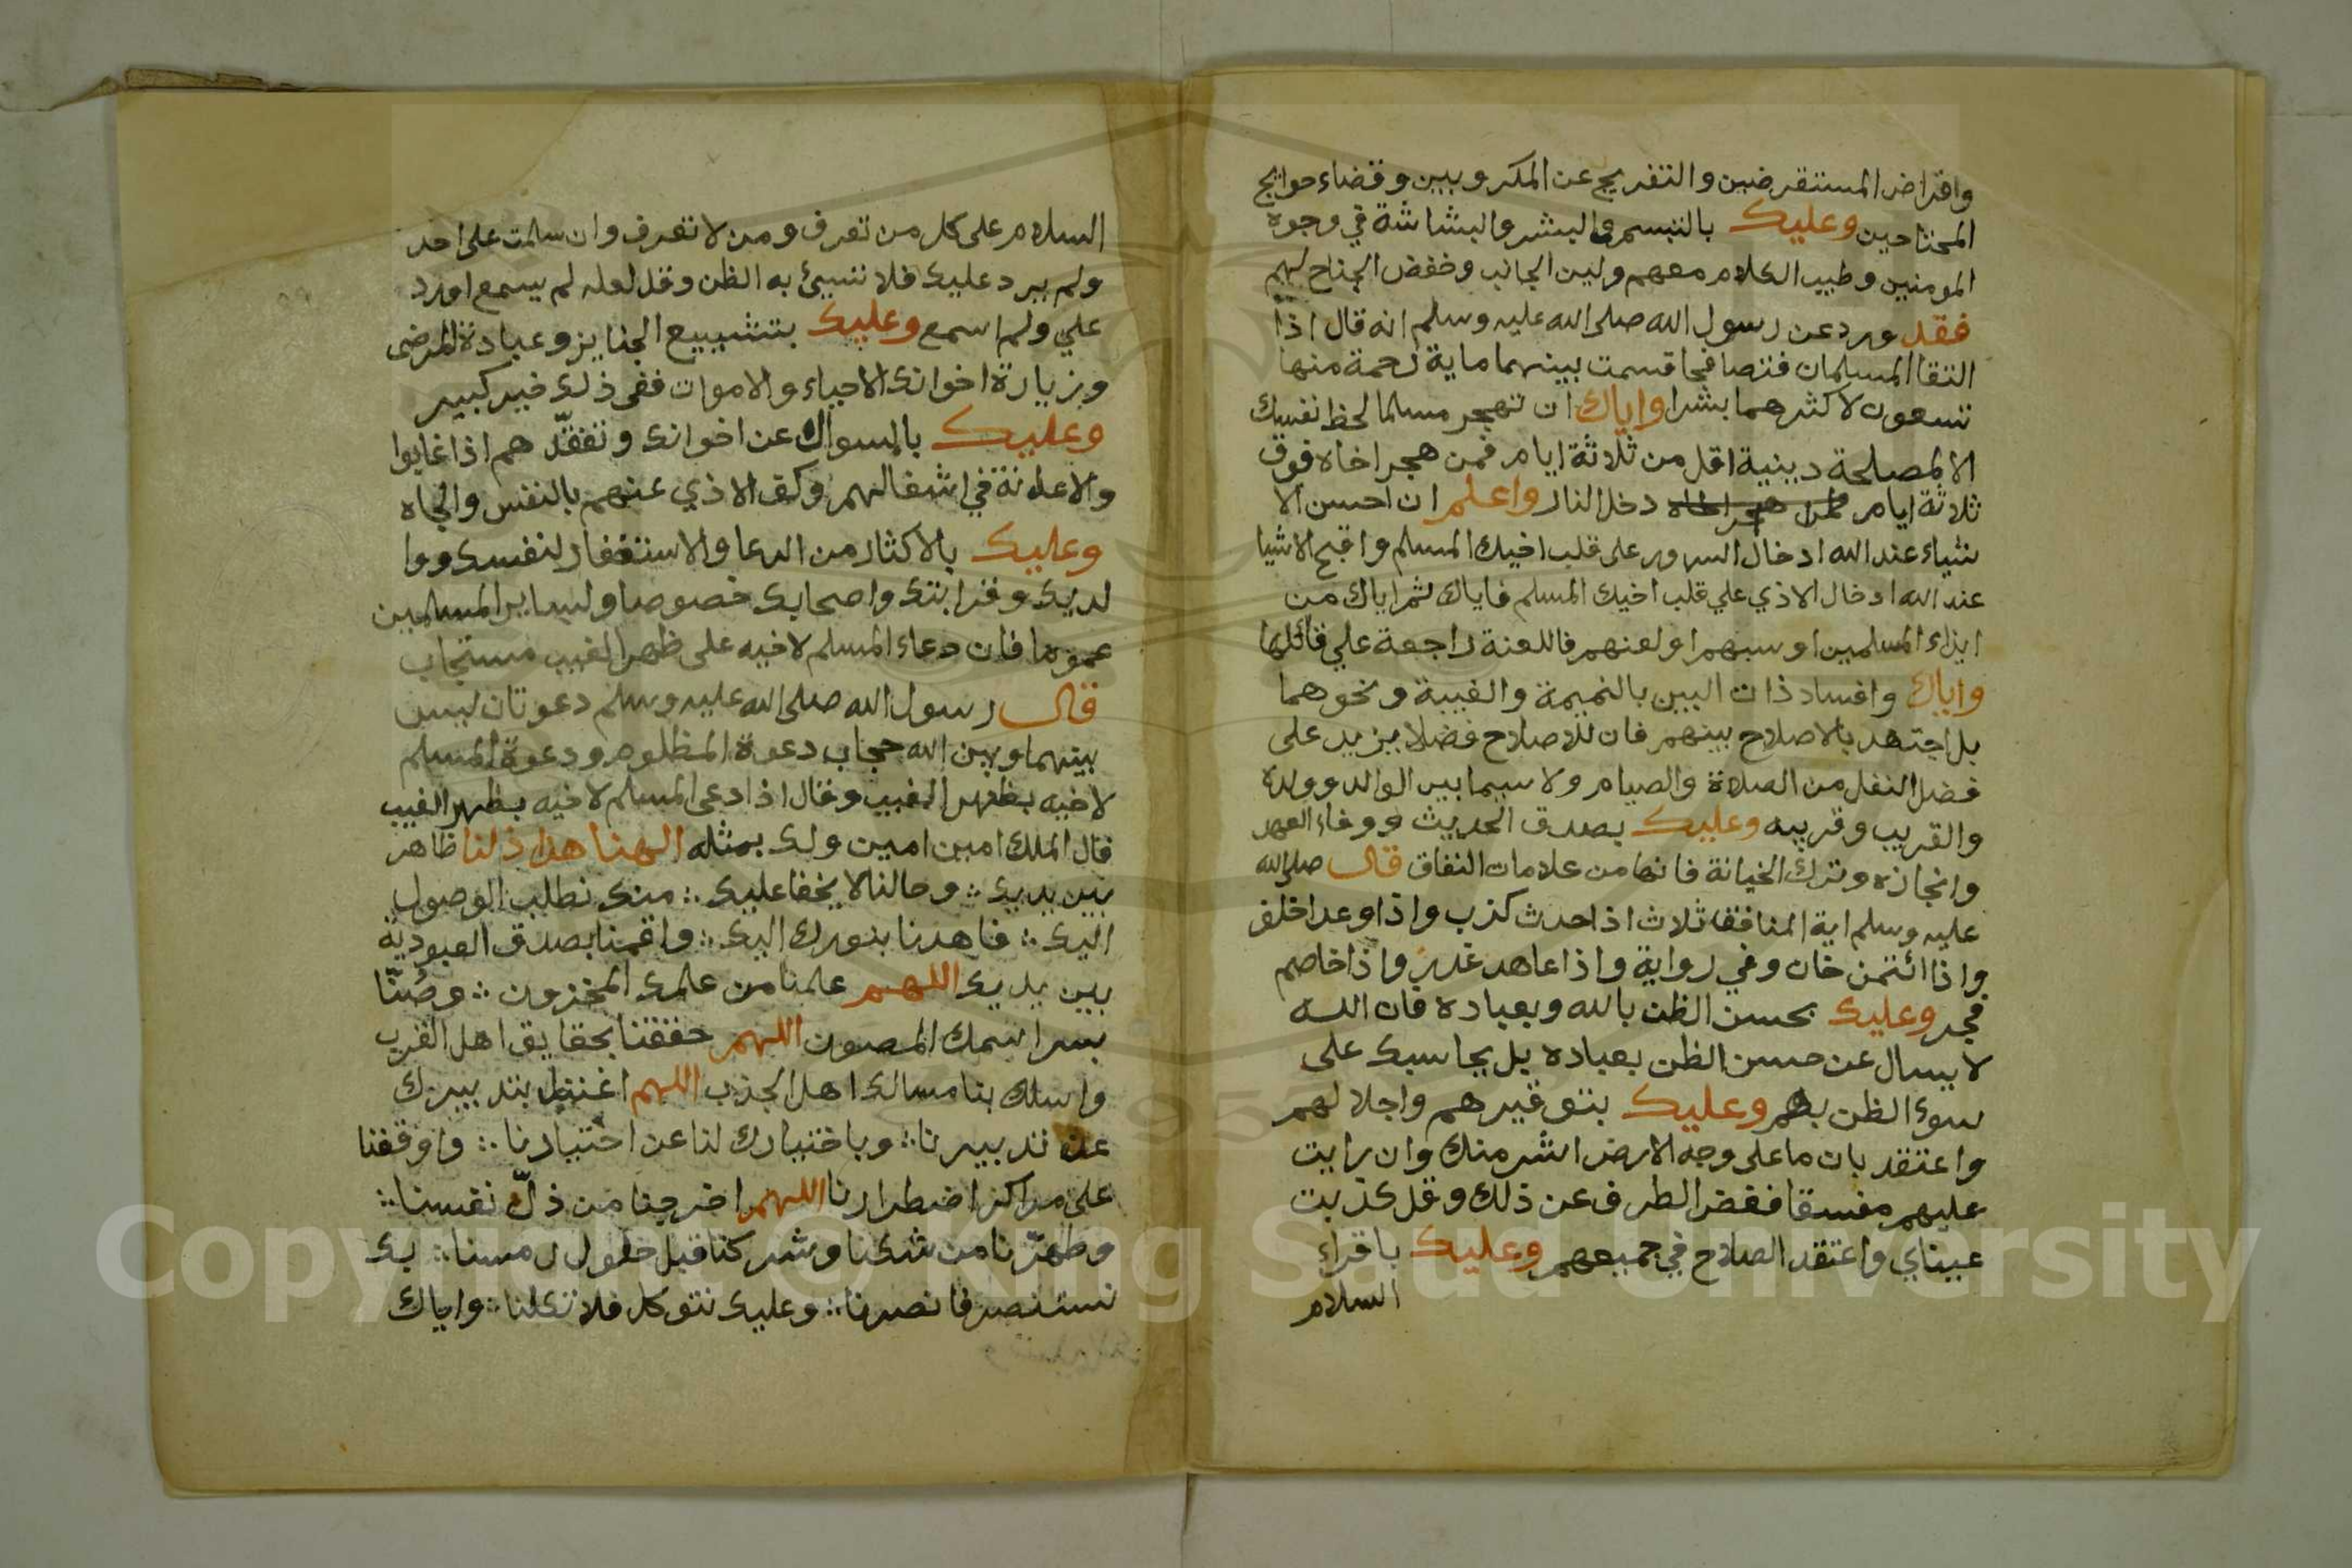 واقراض المستقرضين والتفريج عن المكروبين وقضاء حوايج
المحتاجين وعليك بالتبسم والبشر والبشاشة في وجوه
المومنين وطيب الكلام معهم ولين الجانب وخفض الجناح لهم
فقد ورد عن رسول الله صلى الله عليه وسلم انه قال اذا
التقا المسلمان فتصافحا قسمت بينهما ماية رحمة منها
تسعون لاكثرهما بشرا واياك ان تهجر مسلما لحظ نفسك
الا لمصلحة دينية اقل من ثلاثة ايام فمن هجر اخاه فوق
ثلاثة ايام دخل النار واعلم ان احسن الا
شياء عند الله ادخال السرور على قلب اخيك المسلم واقبح الاشيا
عند الله ادخال الاذي علي قلب اخيك المسلم فاياك ثم اياك من
ايذاء المسلمين او سبهم او لعنهم فاللعنة راجعة علي قائلها
واياك وافساد ذات البين بالنميمة والغيبة ونحوهما
بل اجتهد بالاصلاح بينهم فان للاصلاح فضلا يزيد على
فضل النفل من الصلاة والصيام ولا سيما بين الوالد وولده
والقريب وقريبه وعليك بصدق الحديث ووفاء العهد
وانجازه وترك الخيانة فانها من علامات النفاق قال صلى الله
عليه وسلم اية المنافقا ثلاث اذا حدث كذب واذا وعد اخلف
واذا ائتمن خان وفي رواية واذا عاهد غدر واذا خاصم
فجر وعليك بحسن الظن بالله وبعباده فان الله
لا يسال عن حسن الظن بعباده بل يحاسبك على
سوء الظن بهم وعليك بتوقيرهم واجلالهم
واعتقد بان ما على وجه الارض اشر منك وان رايت
عليهم مفسقا فغض الطرف عن ذلك وقل كذبت
عيناي واعتقد الصلاح في جميعهم وعليك باقراء
السلام
السلام على كل من تعرف ومن لا تعرف وان سلمت على احد
ولم يرد عليك فلا تسيئ به الظن وقل لعله لم يسمع اورد
علي ولم اسمع وعليك بتشييع الجنايز وعيادة المرضى
وبزيارة اخوانك الاحياء والاموات ففي ذلك خير كبير
وعليك بالسوال عن اخوانك وتفقّدهم اذا غابوا
والاعانة في اشغالهم وكف الاذي عنهم بالنفس والجاه
وعليك بالاكثار من الدعا والاستغفار لنفسك ووا
لديك وقرابتك واصحابك خصوصا ولساير المسلمين
عموما فان دعاء المسلم لاخيه على ظهر الغيب مستجاب
قال رسول الله صلى الله عليه وسلم دعوتان ليس
بينهما وبين الله حجاب دعوة المظلوم ودعوة المسلم
لاخيه بظهر الغيب وقال اذا دعى المسلم لاخيه بظهر الغيب
قال الملك امين امين ولك بمثله الهنا هذا ذلنا ظاهر
بين يديك ∴ وحالنا لا يخفا عليك ∴ منك نطلب الوصول
اليك ∴ فاهدنا بنورك اليك ∴ واقمنا بصدق العبودية
بين يديك اللهم علمنا من علمك المخزون ∴ وصُنّا
بسر اسمك المصون اللهم حققنا بحقايق اهل القرب
واسلك بنا مسالك اهل الجذب اللهم اغننا بتدبيرك
عن تدبيرنا ∴ وباختيارك لنا عن اختيارنا ∴ واوقفنا
على مراكز اضطرارنا اللهم اخرجنا من ذلّ نفسنا ∴
وطهّرنا من شكنا وشركنا قبل حلول رمسنا ∴ بك
نستنصر فانصرنا ∴ وعليك نتوكل فلا تكلنا ∴ واياك
Copyright © King Saud University